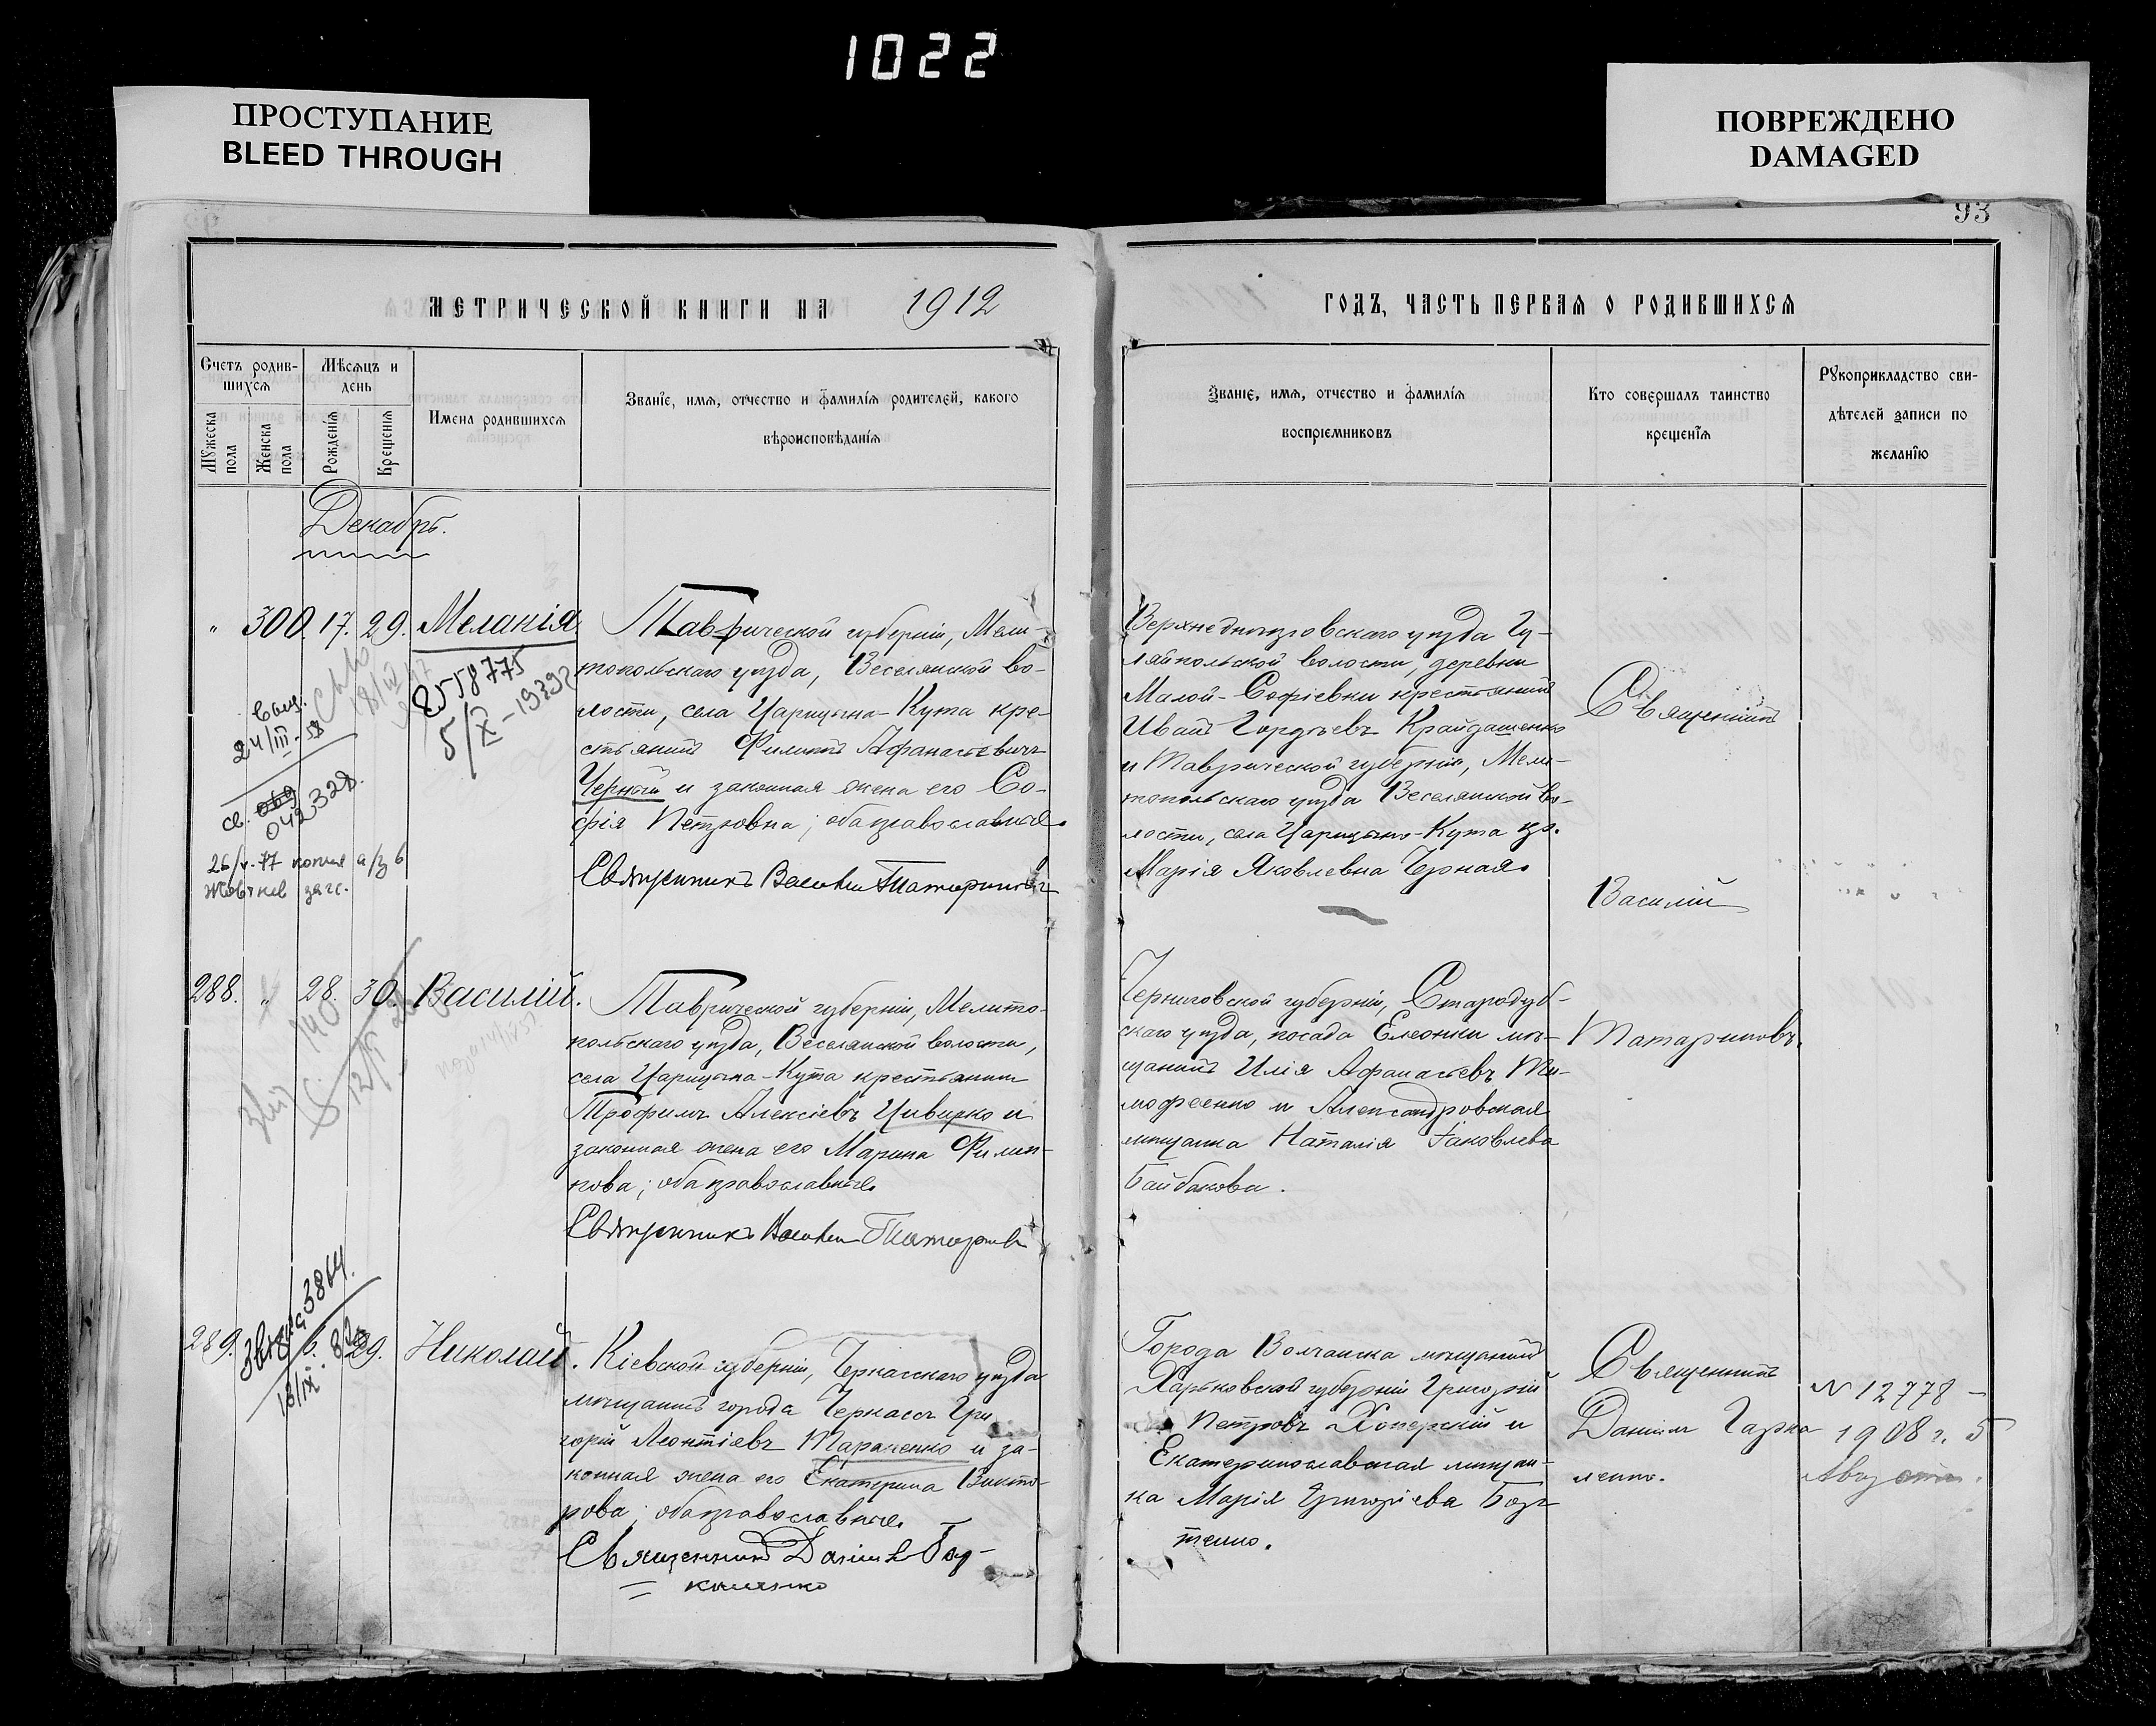 1022
ПРОСТУПАНИЕ
BLEED THROUGH
ПОВРЕЖДЕНО
DAMAGED
93
МЕТРИЧЕСКОЙ КНИГИ НА 1912
ГОДЪ, ЧАСТЬ ПЕРВАЯ О РОДИВШИХСЯ
Счетъ родив-
шихся
Мужеска
пола
Женска
пола
Мѣсяцъ и
день
Рожденія
Крещенія
Имена родившихся
Званіе, имя, отчество и фамилія родителей, какого
вѣроисповѣданія
Званіе, имя, отчество и фамилія
воспріемниковъ
Кто совершалъ таинство
крещенія
Рукоприкладство сви-
дѣтелей записи по
желанію
Декабрь.
" 300. 17. 29. Меланія
Таврической губерніи, Мели-
топольскаго уѣзда, Веселянской во-
лости, села Царицына-Кута кре-
стьянинъ Филиппъ Афанасьевичъ
Черный и законная жена его Со-
фія Петровна; оба православные.
Священникъ Василій Татариновъ
24/III-58
042328
26/V-77 копия а/з в
загс.
5/X-1939г
Верхнеднѣпровскаго уѣзда Гу-
ляйпольской волости, деревни
Малой-Софіевки крестьянинъ
Иванъ Гордѣевъ Крайдашенко
и Таврической губерніи, Мели-
топольскаго уѣзда Веселянской во-
лости, села Царицына-Кута кр.
Марія Яковлевна Черная.
Священникъ
Василій
Татариновъ.
288. " 28. 30. Василій.
Таврической губерніи, Мелито-
польскаго уѣзда, Веселянской волости,
села Царицына-Кута крестьянинъ
Трофимъ Алексіевъ Цивирко и
законная жена его Марина Филип-
пова; оба православные.
Священникъ Василій Татариновъ
Черниговской губерніи, Стародуб-
скаго уѣзда, посада Елеонки мѣ-
щанинъ Илія Афанасьевъ Ти-
мофеенко и Александровская
мѣщанка Наталія Іаковлева
Байбакова.
289. 6. 29. Николай.
Кіевской губерніи, Черкасскаго уѣзда
мѣщанинъ города Черкассъ Гри-
горій Леонтіевъ Тараненко и за-
конная жена его Екатерина Викто-
рова; оба православные.
Священникъ Даніилъ Гар-
коленко
Города Волчанска мѣщанинъ
Харьковской губерніи Григорій
Петровъ Хоперскій и
Екатеринославская мѣщан-
ка Марія Григоріева
тенко.
Священникъ
Даніилъ Гарко-
ленко.
№ 12778 –
1908 г. 5
Августа.